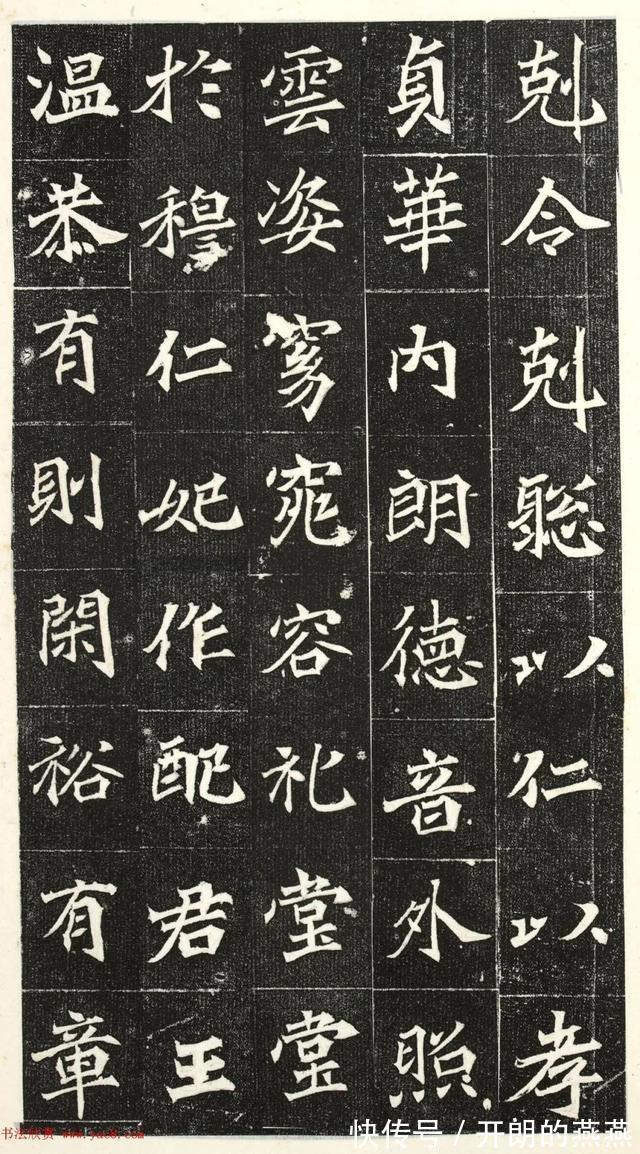 剋令剋聡以仁以孝
貞華内朗徳音外照
雲姿窈窕容礼堂堂
於穆仁妃作配君王
温恭有則閑裕有章
书法欣赏 www.yac8.com
快传号 / 开朗的燕燕